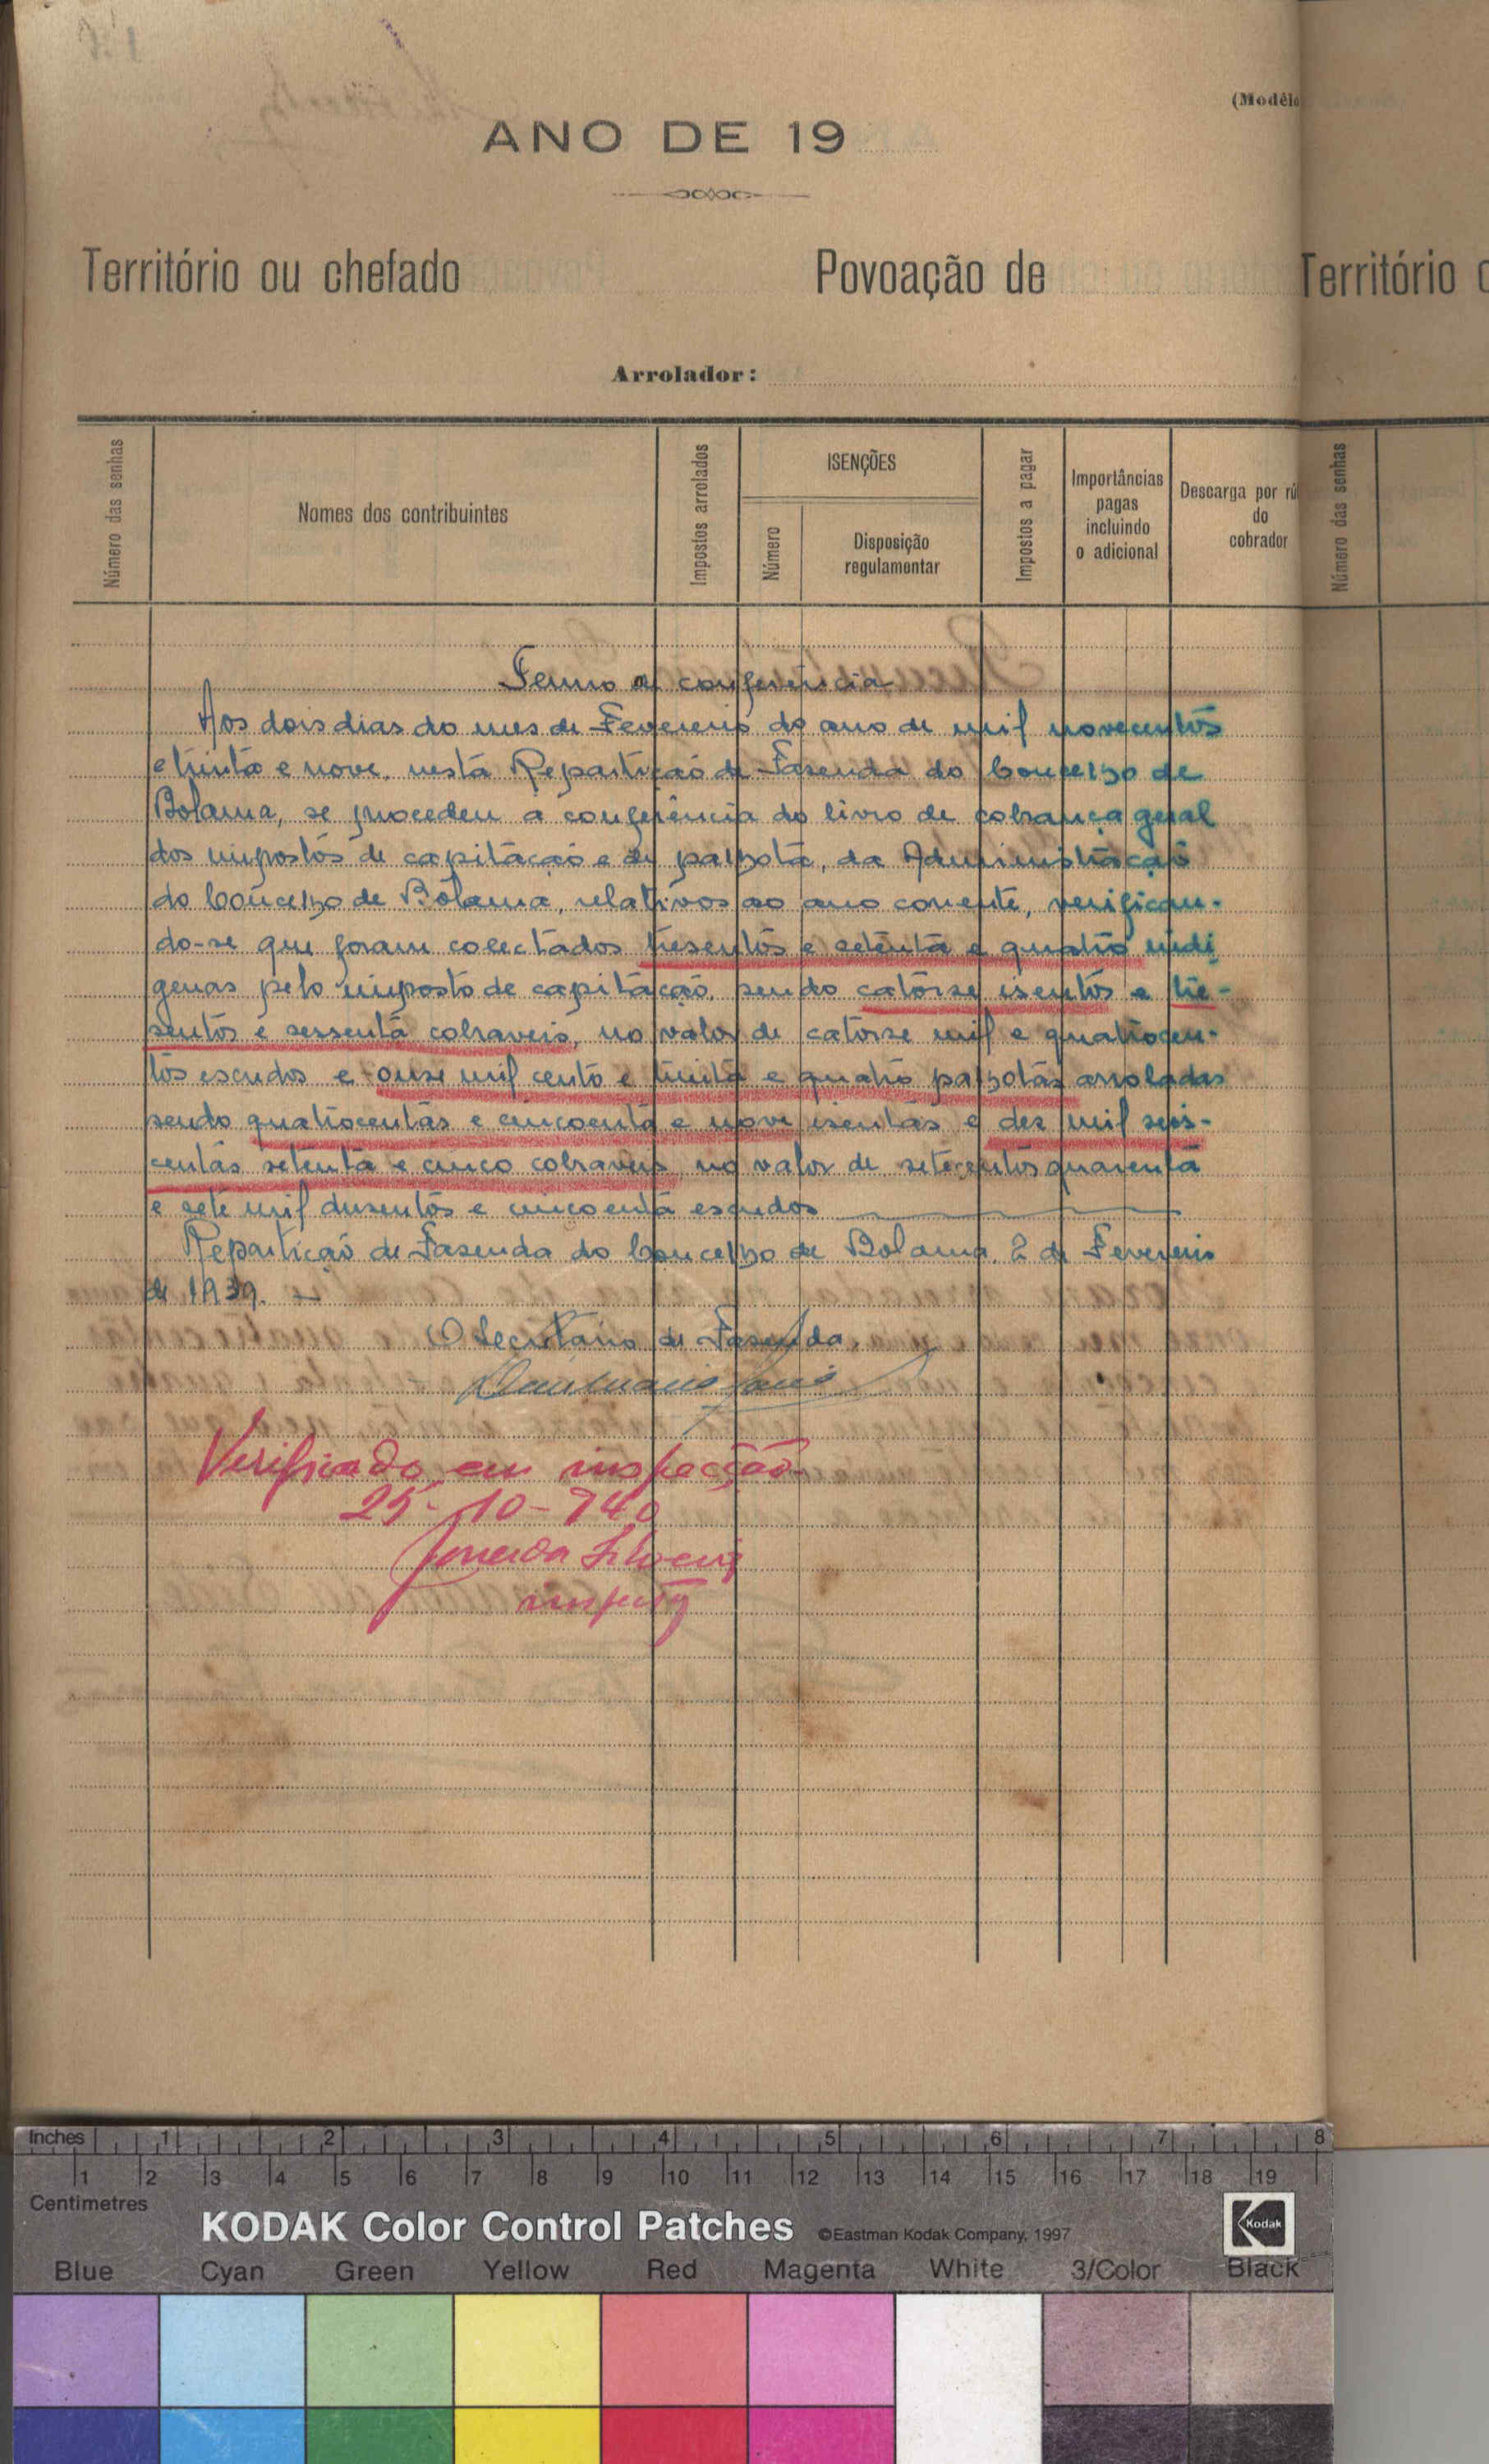 (Modêlo
ANO DE 19
Território ou chefado
Povoação de
Território
Arrolador:
Número das senhas
Nomes dos contribuintes
Impostos arrolados
ISENÇÕES
Número
Disposição
regulamentar
Impostos a pagar
Importâncias
pagas
incluindo
o adicional
Descarga por
do
cobrador
Número das senhas
Termo de conferência
Aos dois dias do mes de Fevereiro do ano de mil novecentos
e trinta e nove, nesta Repartição de Fasenda do Concelho de
Bolama, se procedeu a conferência do livro de cobrança geral
dos impostos de capitação e de palhota, da Administração
do Concelho de Bolama, relativos ao ano corrente, verifican-
do-se que foram colectados tresentos e setenta e quatro indi
genas pelo imposto de capitação, sendo catorse isentos e tre-
sentos e sessenta cobraveis, no valor de catorse mil e quatrocen-
tos escudos e onse mil cento e trinta e quatro palhotas arroladas
sendo quatrocentas e cincoenta e nove isentas e des mil seis-
centas setenta e cinco cobraveis no valor de setecentos quarenta
e sete mil dusentos e cincoenta escudos
Repartição de Fasenda do Concelho de Bolama, 2 de Fevereiro
de 1939.
O Secretario de Fasenda,
Verificado em inspecção
25-10-940
Inches 1 2 3 4 5 6 7 8
1 2 3 4 5 6 7 8 9 10 11 12 13 14 15 16 17 18 19
Centimetres
KODAK Color Control Patches ©Eastman Kodak Company, 1997
Kodak
Blue Cyan Green Yellow Red Magenta White 3/Color Black